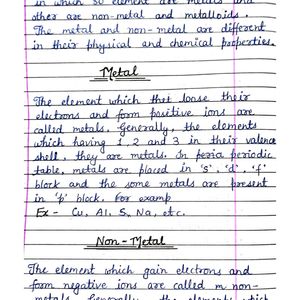 in which 90 element are metals and
other are non-metal and metalloids.
The metal and non-metal are different
in their physical and chemical properties.
Metal
The element which thet loose their
electrons and form positive ions are
called metals. Generally, the elements
which having 1, 2 and 3 in their valence
shell, they are metals. In peria periodic
table, metals are placed in 's', 'd', 'f'
block and the some metals are present
in 'p' block. For examp
Ex - Cu, Al, S, Na, etc.
Non-Metal
The element which gain electrons and
form negative ions are called m non-
metals. Generally, the element which